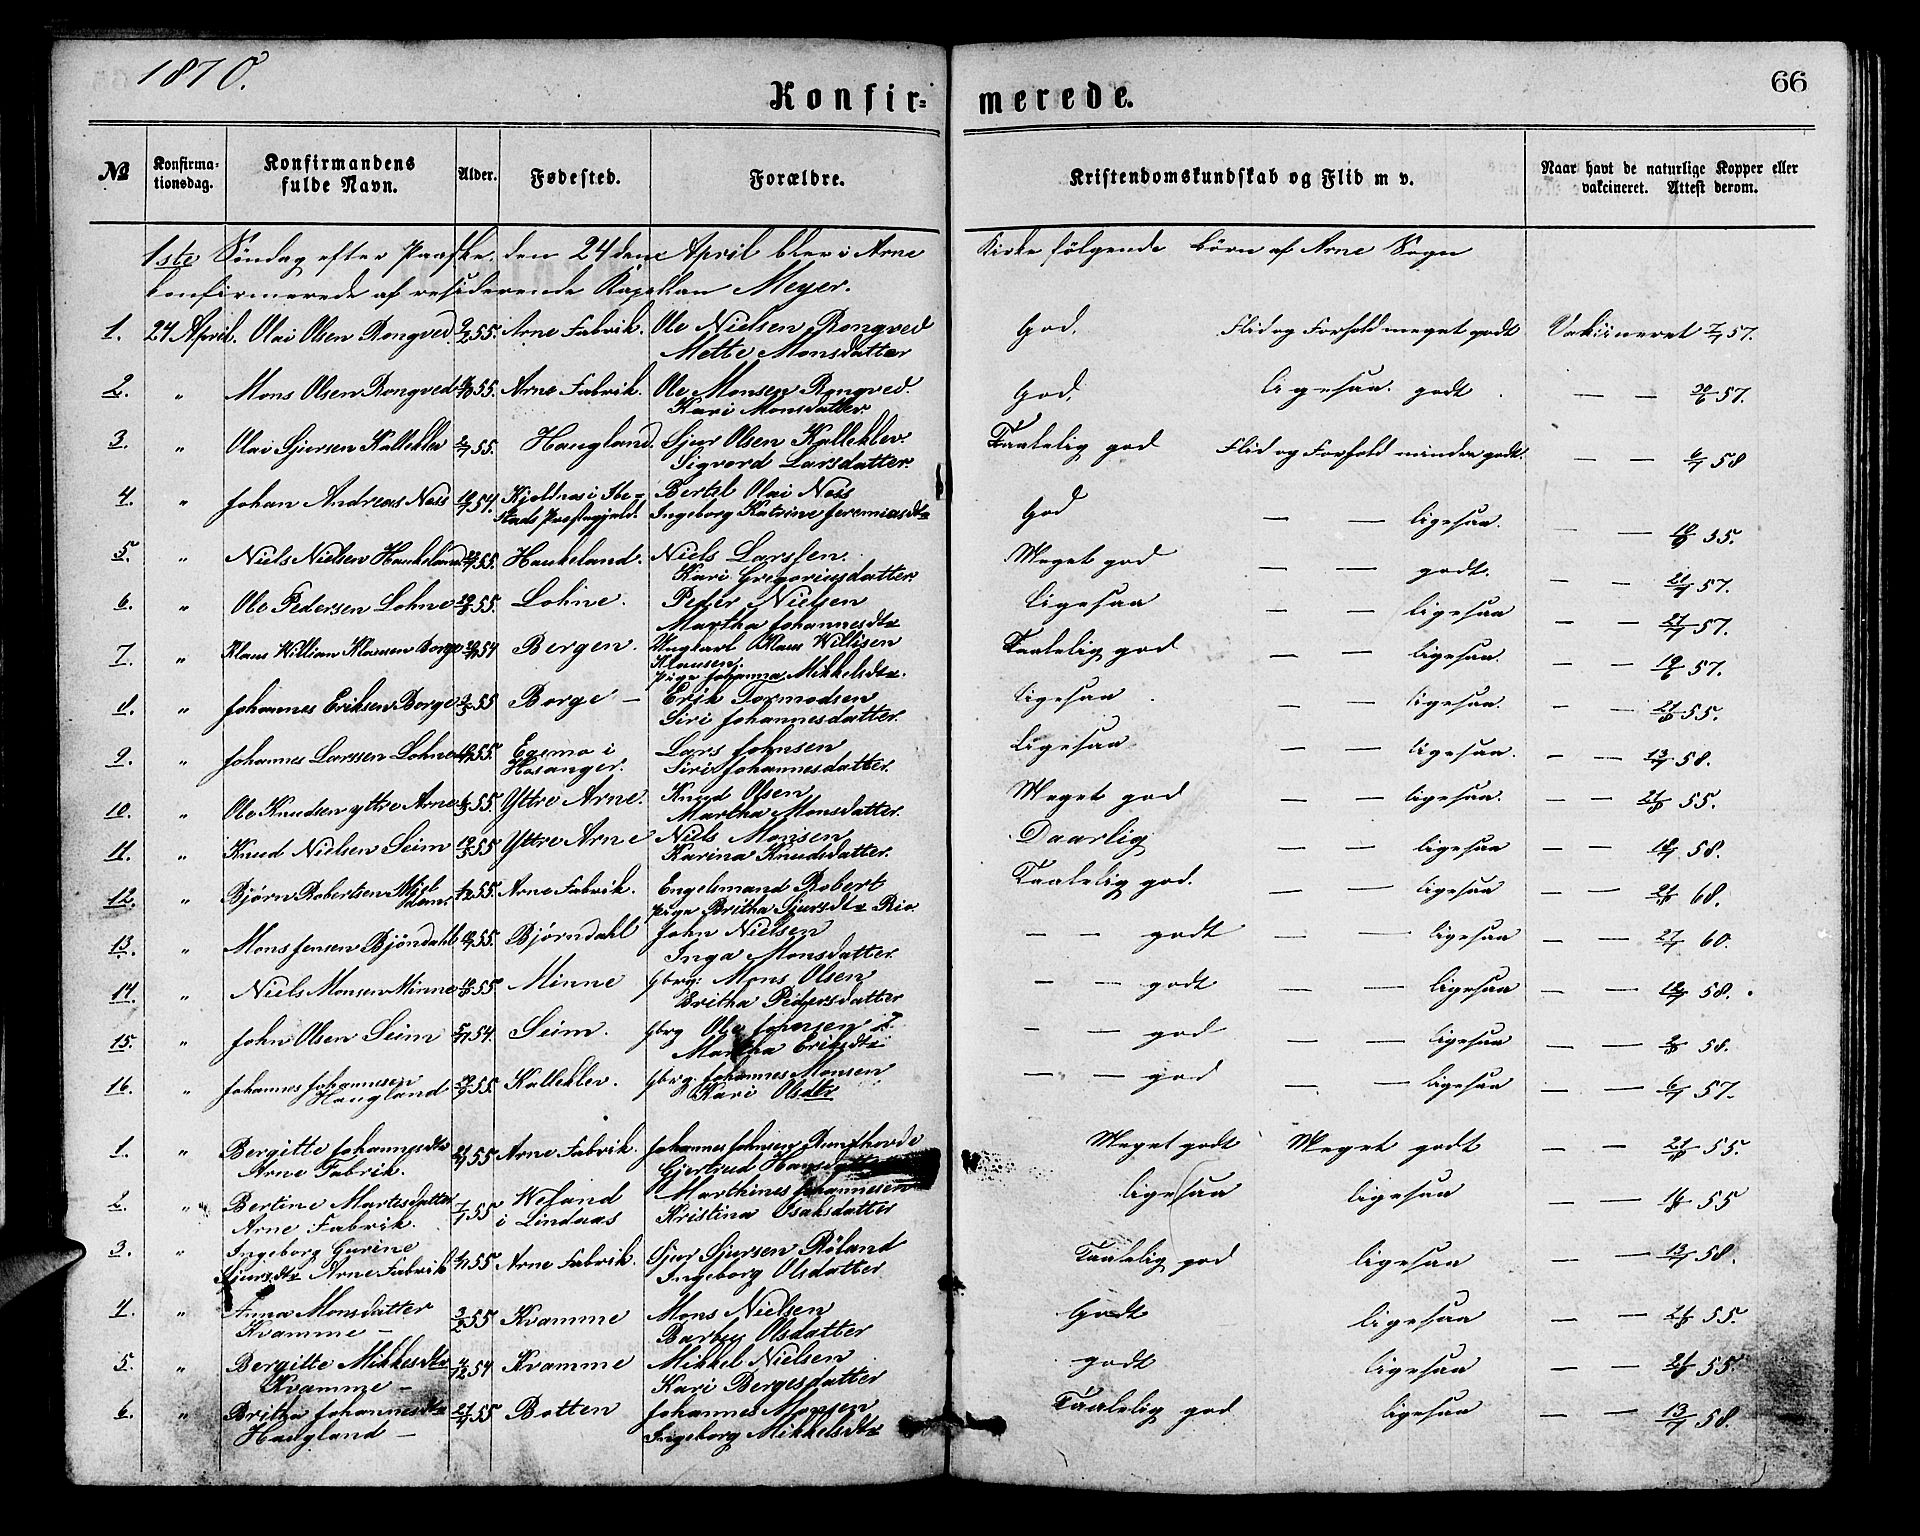 1870.
Konfir-
merede.
66
No
Konfirma-
tionsdag.
Konfirmandens
fulde Navn.
Alder.
Fødested.
Forældre.
Kristendomskundskab og Flid m v.
Naar havt de naturlige Kopper eller
vakcineret. Attest derom.
1ste Søndag efter Paaske, den 24de April blev i Arne Kirke følgende Børn af Arne Sogn
konfirmerede af residerende Kapellan Meyer.
1. 24 April. Olai Olsen Rongved 55. Arne Fabrik. Ole Nielsen Rongved God. Flid og Forhold meget godt Vakcineret 57.
Mette Monsdatter
2. " Mons Olsen Rongved 55. Arne Fabrik. Ole Monsen Rongved. God. ligesaa godt — — 57.
Kari Monsdatter
3. " Olai Sjursen Kalleklev 55. Haugland. Sjur Olsen Kalleklev. Taalelig god Flid og Forhold mindre godt. — — 6/7 58
Sigvord Larsdatter.
4. " Johan Andreas Ness 54. Kjeldnes i Ibe- Bertel Olai Ness God — — ligesaa. — —
stads Prestegjeld. Ingeborg Katrine Jeremiasdtr
5. " Niels Nielsen Haukeland 55. Haukeland. Niels Larssen Meget god — — godt. — — 57.
Kari Gregoriusdatter.
6. " Ole Pedersen Lohne 55. Lohne. Peder Nielsen ligesaa — — ligesaa — — 57.
Martha Johannesdtr
7. " Klaus Willian Klausen Borge 54 Bergen. Ungkarl Klaus Willisen Taalelig god — — ligesaa. — — 57.
Klausen,
Pige Johanna Mikkelsdtr.
8. " Johannes Eriksen Borge 55 Borge — Erik Tormodsen ligesaa — — ligesaa. — — 55.
Siri Johannesdatter.
9. " Johannes Larssen Lohne 55. Egemo i Lars Johnsen ligesaa — — ligesaa. — — 13/7 58.
Hosanger. Siri Johannesdatter.
10. " Ole Knudsen yttre Arne 55. Yttre Arne. Knud Olsen Meget god — — ligesaa. — — 55.
Martha Monsdatter.
11. " Knud Nielsen Seim 55 Yttre Arne Niels Monsen Daarlig — — ligesaa — — 58.
Karina Knudsdatter.
12. " Bjørn Robertsen 55. Arne Fabrik. Engelsmand Robert Taalelig god. — — ligesaa — — 68.
Pige Britha Sjursdtr Rio.
13. " Mons Jensen Bjöndahl 55. Bjørndahl John Nielsen — — godt — — ligesaa — — 27/7 60.
Inga Monsdatter.
14. " Niels Monsen Minne 55 Minne gbrg: Mons Olsen — — godt — — ligesaa — — 58.
Britha Pedersdatter
15. " John Olsen Seim 54. Seim. gbrg Ole Johnsen — — god — — ligesaa — — 58.
Martha Eriksdtr
16. " Johannes Johannesen 55. Kalleklev. gbrg. Johannes Monsen — — god — — ligesaa — — 6/7 57.
Haugland Kari Olsdtr
1. " Bergitte Johannesdtr 55 Arne Fabrik. Johannes Johnsen Meget godt Meget godt — — 55.
Arne Fabrik. Gjertrud Hansdatter
2. " Bertine Martesdatter 55 i Lindaas Marthines Johannesen ligesaa ligesaa — — 55
Arne Fabrik. Kristina Osaksdatter
3. " Ingeborg Gurine 55 Arne Fabrik. Sjur Sjursen Røland Taalelig god ligesaa — — 13/7 58.
Sjursdtr Arne Fabrik Ingeborg Olsdatter
4. " Anna Monsdatter 3/2 55 Kvamme Mons Nielsen Godt ligesaa — — 55.
Kvamme — Barbry Olsdatter
5. " Bergitte Mikkelsdtr 54 Kvamme Mikkel Nielsen godt ligesaa — — 55.
Kvamme — Kari Bergesdatter
6. " Britha Johannesdtr 55 Botten Johannes Monsen Taalelig god ligesaa — — 13/7 58.
Haugland — Ingeborg Mikkelsdtr